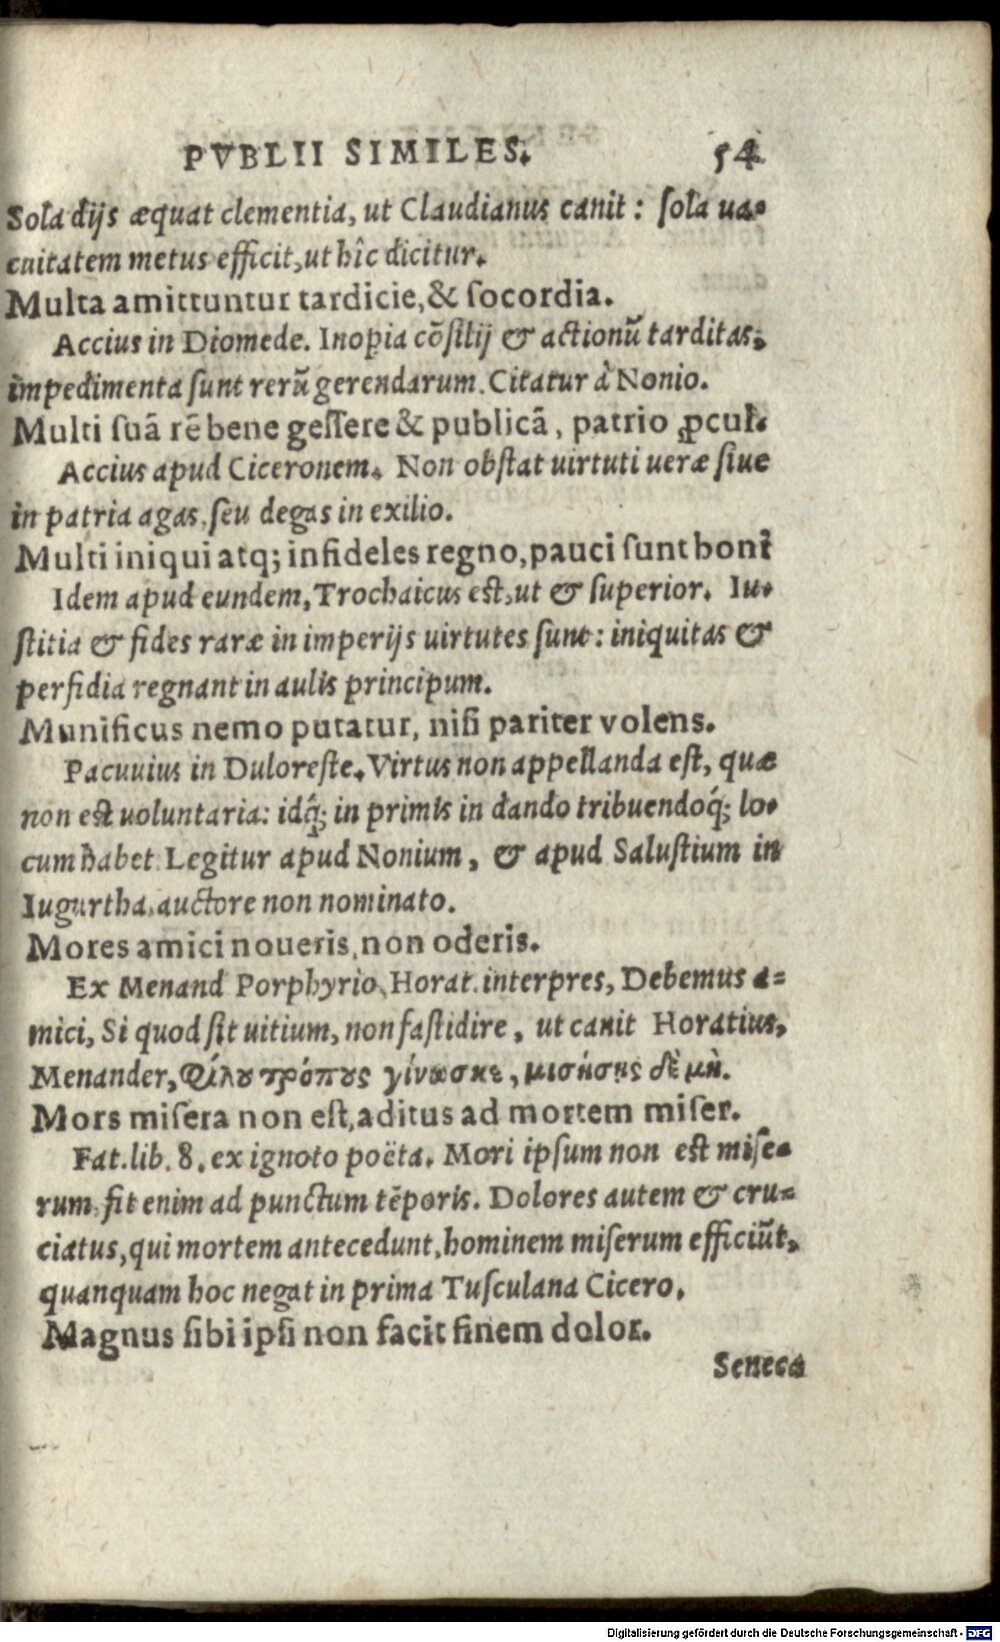 PVBLII SIMILES. 54
Sola dijs æquat clementia, ut Claudianus canit: ſola ua-
cuitatem metus efficit, ut hîc dicitur.
Multa amittuntur tardicie, & ſocordia.
Accius in Diomede. Inopia cõſilij & actionũ tarditas,
impedimenta ſunt rerũ gerendarum. Citatur à Nonio.
Multi ſuã rẽ bene geſſere & publicã, patrio ꝓcul.
Accius apud Ciceronem. Non obſtat uirtuti ueræ ſiue
in patria agas, ſeu degas in exilio.
Multi iniqui atq; infideles regno, pauci ſunt boni
Idem apud eundem, Trochaicus est, ut & ſuperior. Iu-
ſtitia & fides raræ in imperijs uirtutes ſunt: iniquitas &
perfidia regnant in aulis principum.
Munificus nemo putatur, niſi pariter volens.
Pacuuius in Duloreſte. Virtus non appellanda eſt, quæ
non est uoluntaria: idq́; in primis in dando tribuendoq́; lo-
cum habet. Legitur apud Nonium, & apud Saluſtium in
Iugurtha, auctore non nominato.
Mores amici noueris, non oderis.
Ex Menand Porphyrio, Horat. interpres, Debemus a-
mici, Si quod ſit uitium, non faſtidire, ut canit Horatius,
Menander, Φίλου τρόπους γίνωσκε, μισήσῃς δὲ μὴ.
Mors miſera non eſt, aditus ad mortem miſer.
Fat. lib. 8. ex ignoto poëta. Mori ipſum non est miſe-
rum, fit enim ad punctum tẽporis. Dolores autem & cru-
ciatus, qui mortem antecedunt, hominem miſerum efficiũt,
quanquam hoc negat in prima Tuſculana Cicero.
Magnus ſibi ipſi non facit finem dolor.
Seneca
Digitalisierung gefördert durch die Deutsche Forschungsgemeinschaft - DFG